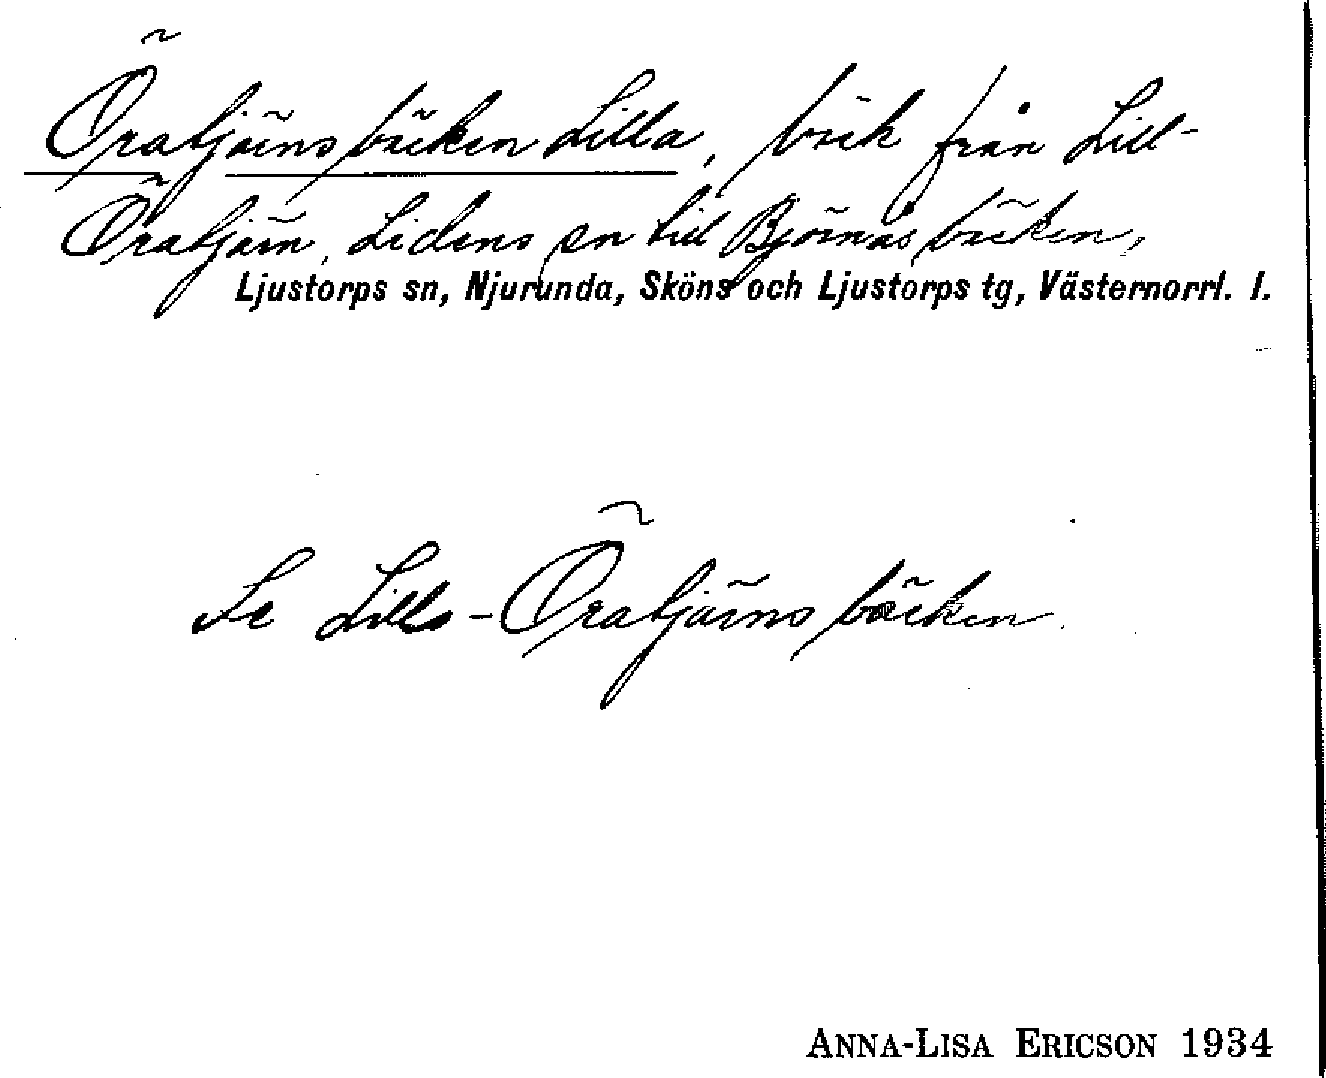 Öratjärnsbäcken Lilla, bäck från Lill-
Öratjärn, Lidens sn till Björnåsbäcken,
Ljustorps sn, Njurunda, Sköns och Ljustorps tg, Västernorrl. l.
Se Lilla-Öratjärnsbäcken.
ANNA-LISA ERICSON 1934